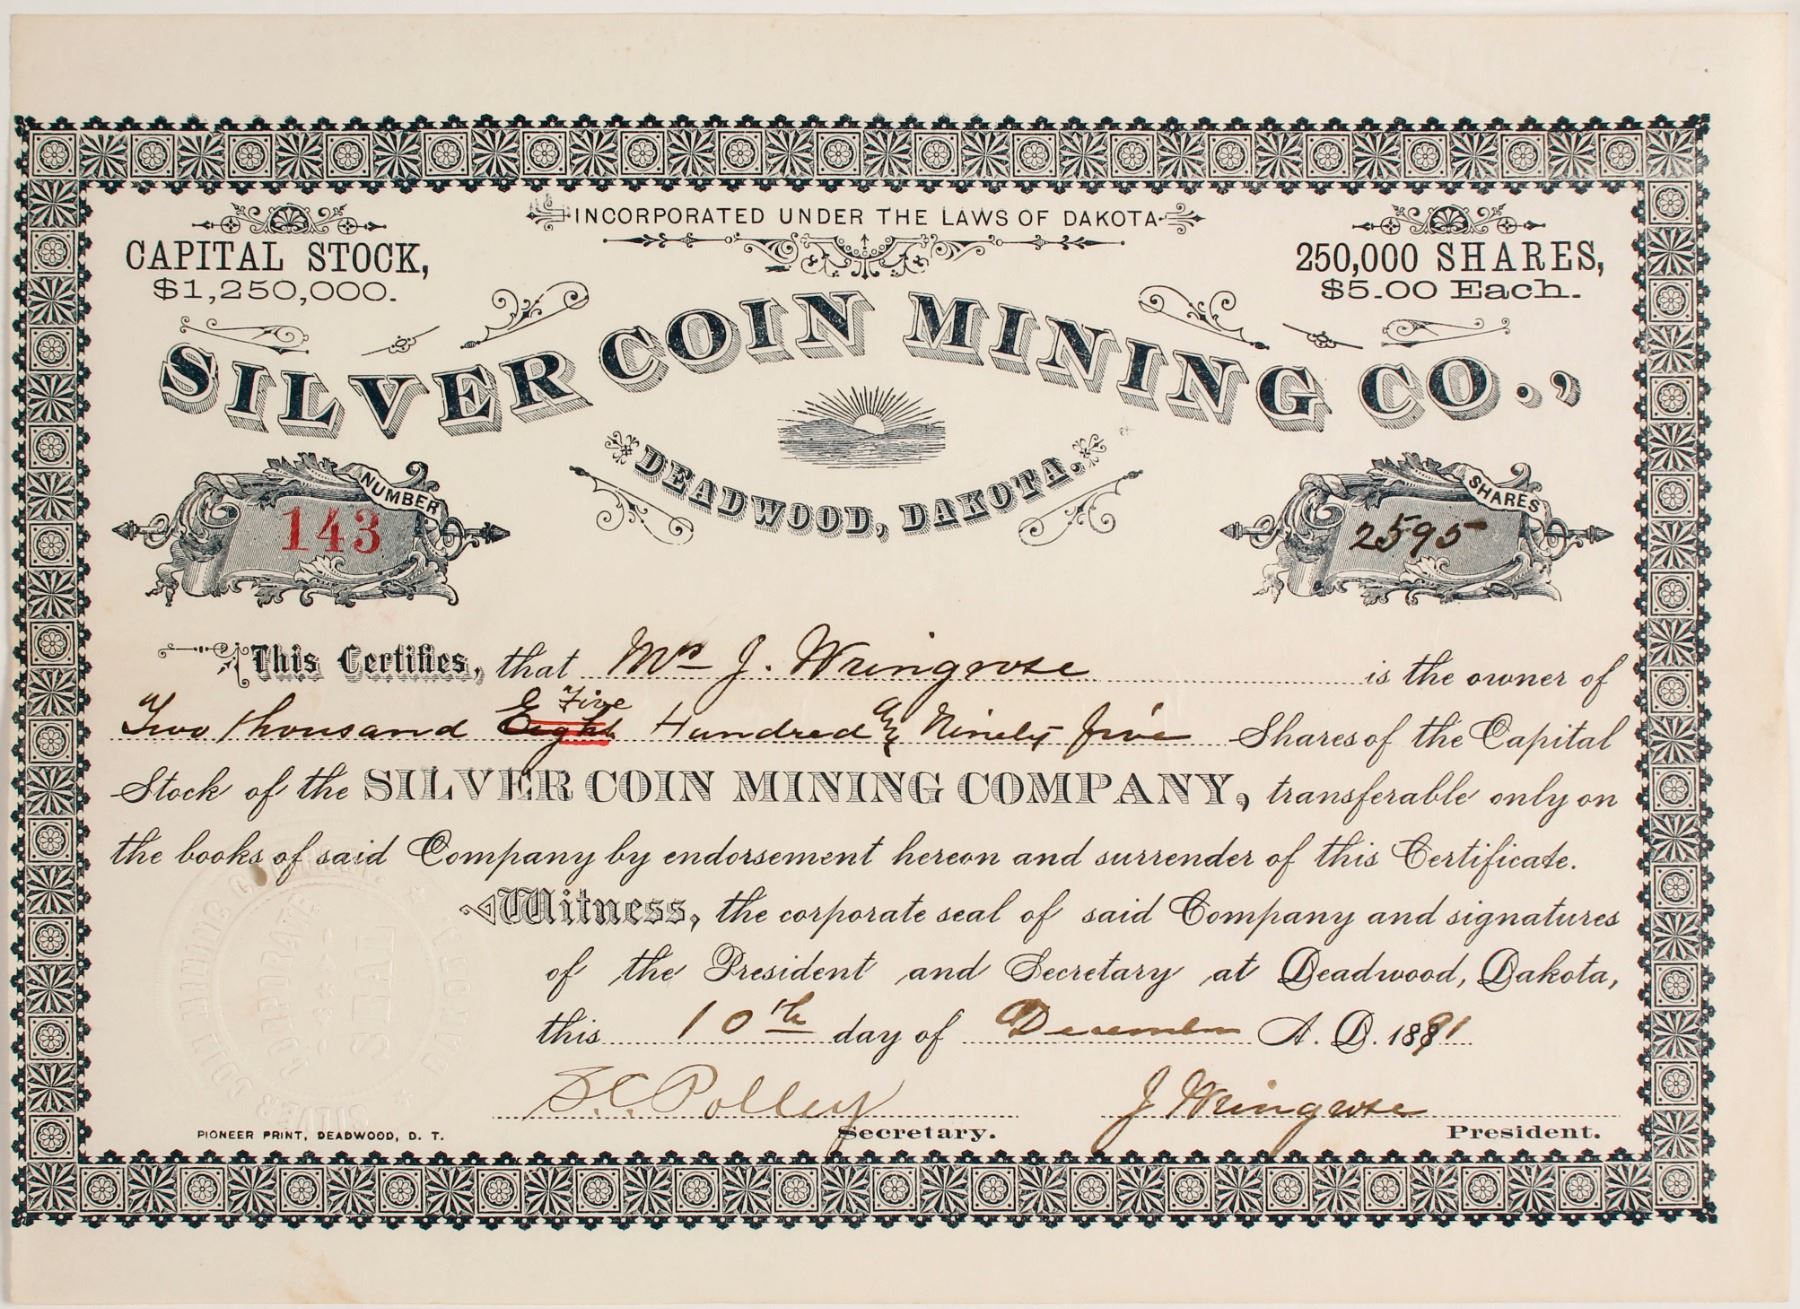 INCORPORATED UNDER THE LAWS OF DAKOTA
CAPITAL STOCK,
$1,250,000.
250,000 SHARES,
$5.00 Each.
SILVER COIN MINING CO.,
DEADWOOD, DAKOTA.
NUMBER
143
SHARES
2595
This Certifies, that Mrs J. Wringrose is the owner of
Five
Two thousand Eight Hundred & Ninety five Shares of the Capital
Stock of the SILVER COIN MINING COMPANY, transferable only on
the books of said Company by endorsement hereon and surrender of this Certificate.
Witness, the corporate seal of said Company and signatures
of the President and Secretary at Deadwood, Dakota,
this 10th day of December A. D. 1891
S. C. Polley
Secretary.
J Wringrose
President.
PIONEER PRINT, DEADWOOD, D. T.
SILVER COIN MINING COMPANY.
CORPORATE
SEAL